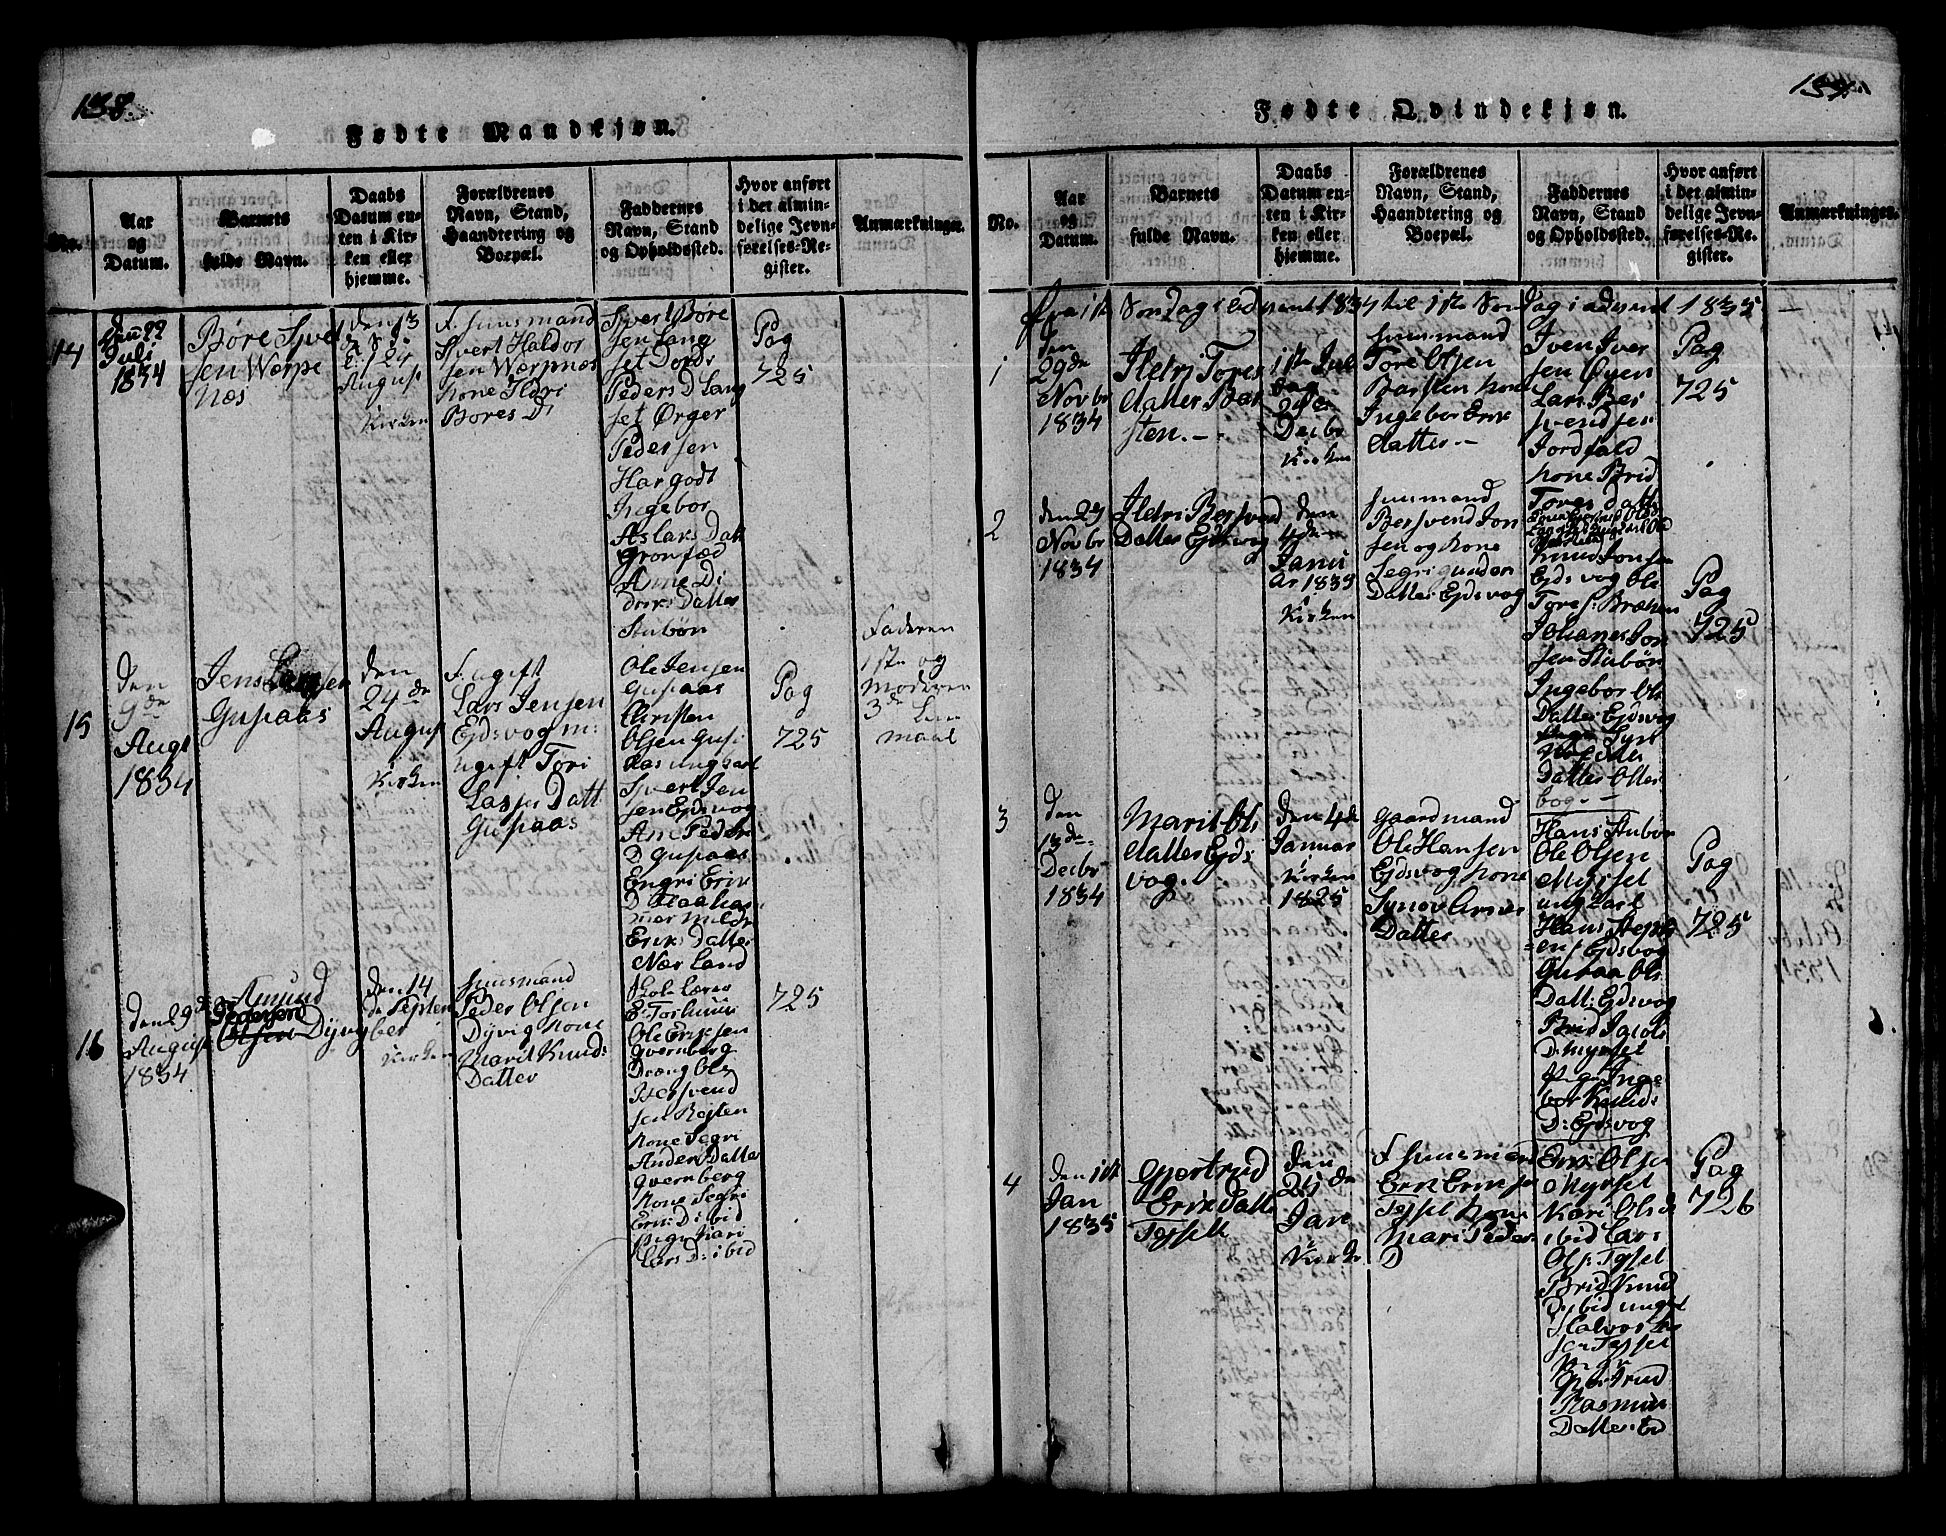 138
Fødte Mandkjøn.
No.
Aar og Datum.
Barnets fulde Navn.
Daabs Datum enten i Kirken eller hjemme.
Forældrenes Navn, Stand, Haandtering og Boepæl.
Faddernes Navn, Stand og Opholdssted.
Hvor anført i det almindelige Jevnførelses-Register.
Anmærkninger.
14
Juli
1834
Børe Sjver
sen Værpe
næs
den 13
August
Kirken
F. Huusmand
Sivert Haldor
sen Wærpnæs
kone Ildri
Bores D
Sivert Børe
sen Lang
set Dordi
Peders D Lang
set Ørger
Pedersen
Hargodt
Ingebor
Aslaks Datt
Gronfæd
Anne Di
driks Datter
Stubøn
Pag
725
15
den
9de
Augs
1834
Jens Larsen
Gusiaas
den
24de
August
Kirken
F. ugift
Lars Jensen
Ejdsvog m:
ugift Tori
Lasses Datt
Gusiaas
Ole Jensen
Gusiaas
Christen
Olsen Gusi
aas ungkarl
Sivert Jen
sen Ejdsvog
Ane Peders
D Gusiaas
Engri Erik
D
Eriks Datter
Nærland
Pag
725
Faderen
1ste og
Moderen
3de Lein
maal
16
den 29de
August
1834
Amund
Pedersen
Olsen Dyvig
den 14
de Septem
ber
Kirken
Huusmand
Peder Olsen
Dyvig Kone
Marit Knuds
Datter
Skolelærer
E. Torhuus
Ole Eriksen
Gvernberg
Dræng Ole
Bersvend
sen Rejsten
Kone Segri
Anders Datter
Gvernberg
Kone Segri
Eriks D: ibid
Pige Kari
Lars D: ibid
725
139
Fødte Qvindekjøn.
No.
Aar og Datum.
Barnets fulde Navn.
Daabs Datum enten i Kirken eller hjemme.
Forældrenes Navn, Stand, Haandtering og Boepæl.
Faddernes Navn, Stand og Opholdssted.
Hvor anført i det almindelige Jevnførelses-Register.
Anmærkninger.
Fra 1ste Søndag i advent 1834 til 1ste Søndag i advent 1835
1
den
29de
Novbr
1834
Ildri Tores
datter Bær
sten.
1ste Jule
dag
Decbr
Kirken
Huusmand
Tore Olsen
Bærsten kone
Ingebor Erik
datter
Iven Iver
sen Øyen
Lars Ber
svendsen
Jordfald
kone Brid
Tores datt
Pag
725
2
den 29
Novbr
1834
Ildri Bersvend
Datter Ejdsvog
den
4de
Janu
ar 1835
Kirken
Huusmand
Bersvend Jon
sen og Kone
Segri Gunder
Datter Ejdsvog
Knud Jonsen
Ejdsvog Ole
Tores: Bræken
Johanes Jon
sen Stubøn
Ingebor Ols
Datter Ejdsvog
Pige Syn
Datter Olter
bog.
Pag
725
3
den
13de
Decbr
1834
Marit Ols
datter Ejds
vog.
den 4de
Januar
Kirken
1825
Gaardmand
Ole Hansen
Ejdsvog kone
Synov Arnes
Datter
Hans Stubøn
Ole Olsen
Myrset
ungkarl
Hans Steph
en s Ejdsvog
Guraa Ols
Datt: Ejdsvog
Brid Jacobs
D: Myrset
Pige Inge
bor Knuds
D: Ejdsvog
Pag
725
4
den 1ste
Jan
1835
Gjertrud
Erik Datter
Tejset
den
25de
Jan
Kirken
F Huusmand
Erik Eriksen
Tejset Kone
Mari Peders
D
Erik Olsen
Myrset
Kari Ols D
ibid Lars
Ols: Tejset
Brid Knud
D: ibid ungk
Halvor
sen Tejset
Pige
Gjertrud
Rasmus
Datter ibid
Pag
726